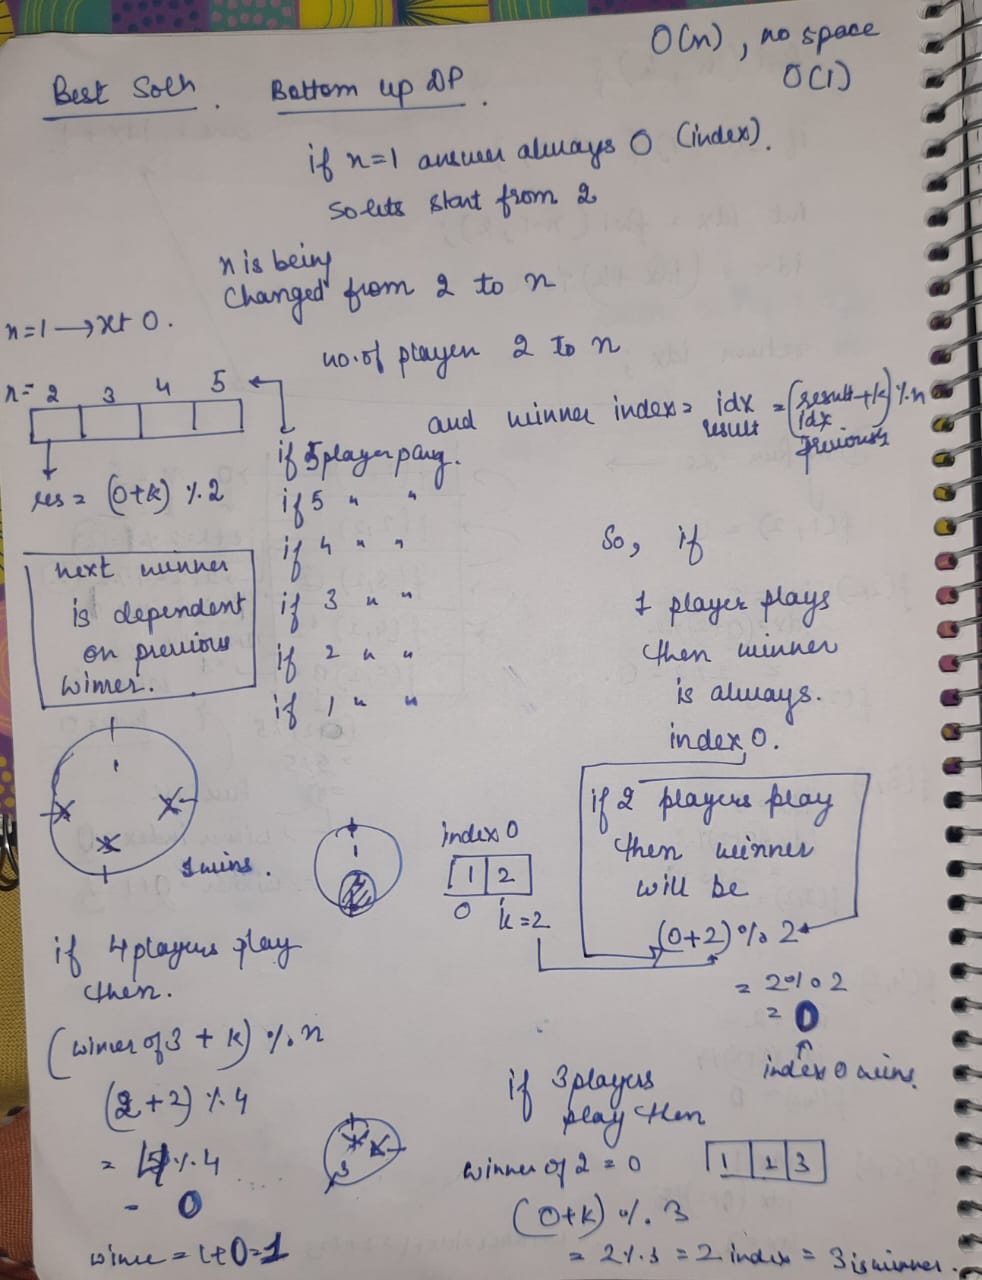 O(n), no space
O(1)
Best Soln. Bottom up DP.
if n=1 answer always 0 (index).
so lets start from 2
n is being
changed from 2 to n
n=1 → 0.
no. of player 2 to n
n= 2 3 4 5
and winner index = idx result = (result idx previous + k) % n
res = (0+k) % 2
if 5 player
if 5 " "
if 4 " "
if 3 " "
if 2 " "
if 1 " "
next winner
is dependent
on previous
winner.
So, if
1 player plays
then winner
is always.
index 0.
1 wins.
index 0
1 2
0 k=2
if 2 players play
then winner
will be
(0+2) % 2
= 2 % 2
= 0
index 0 wins.
if 4 players play
then.
(winner of 3 + k) % n
(2+2) % 4
= 4 % 4
= 0
winner = 1+0=1
3
if 3 players
play then
winner of 2 = 0
1 2 3
(0+k) % 3
= 2 % 3 = 2 index = 3 is winner.